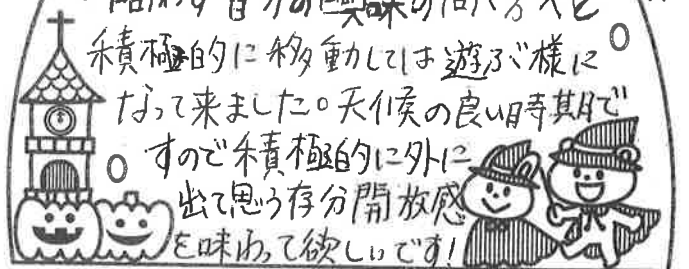 問わず自分の興味の向く方へと
積極的に移動しては遊ぶ様に
なって来ました。天候の良い時期で
すので積極的に外に
出て思う存分開放感
を味わって欲しいです!